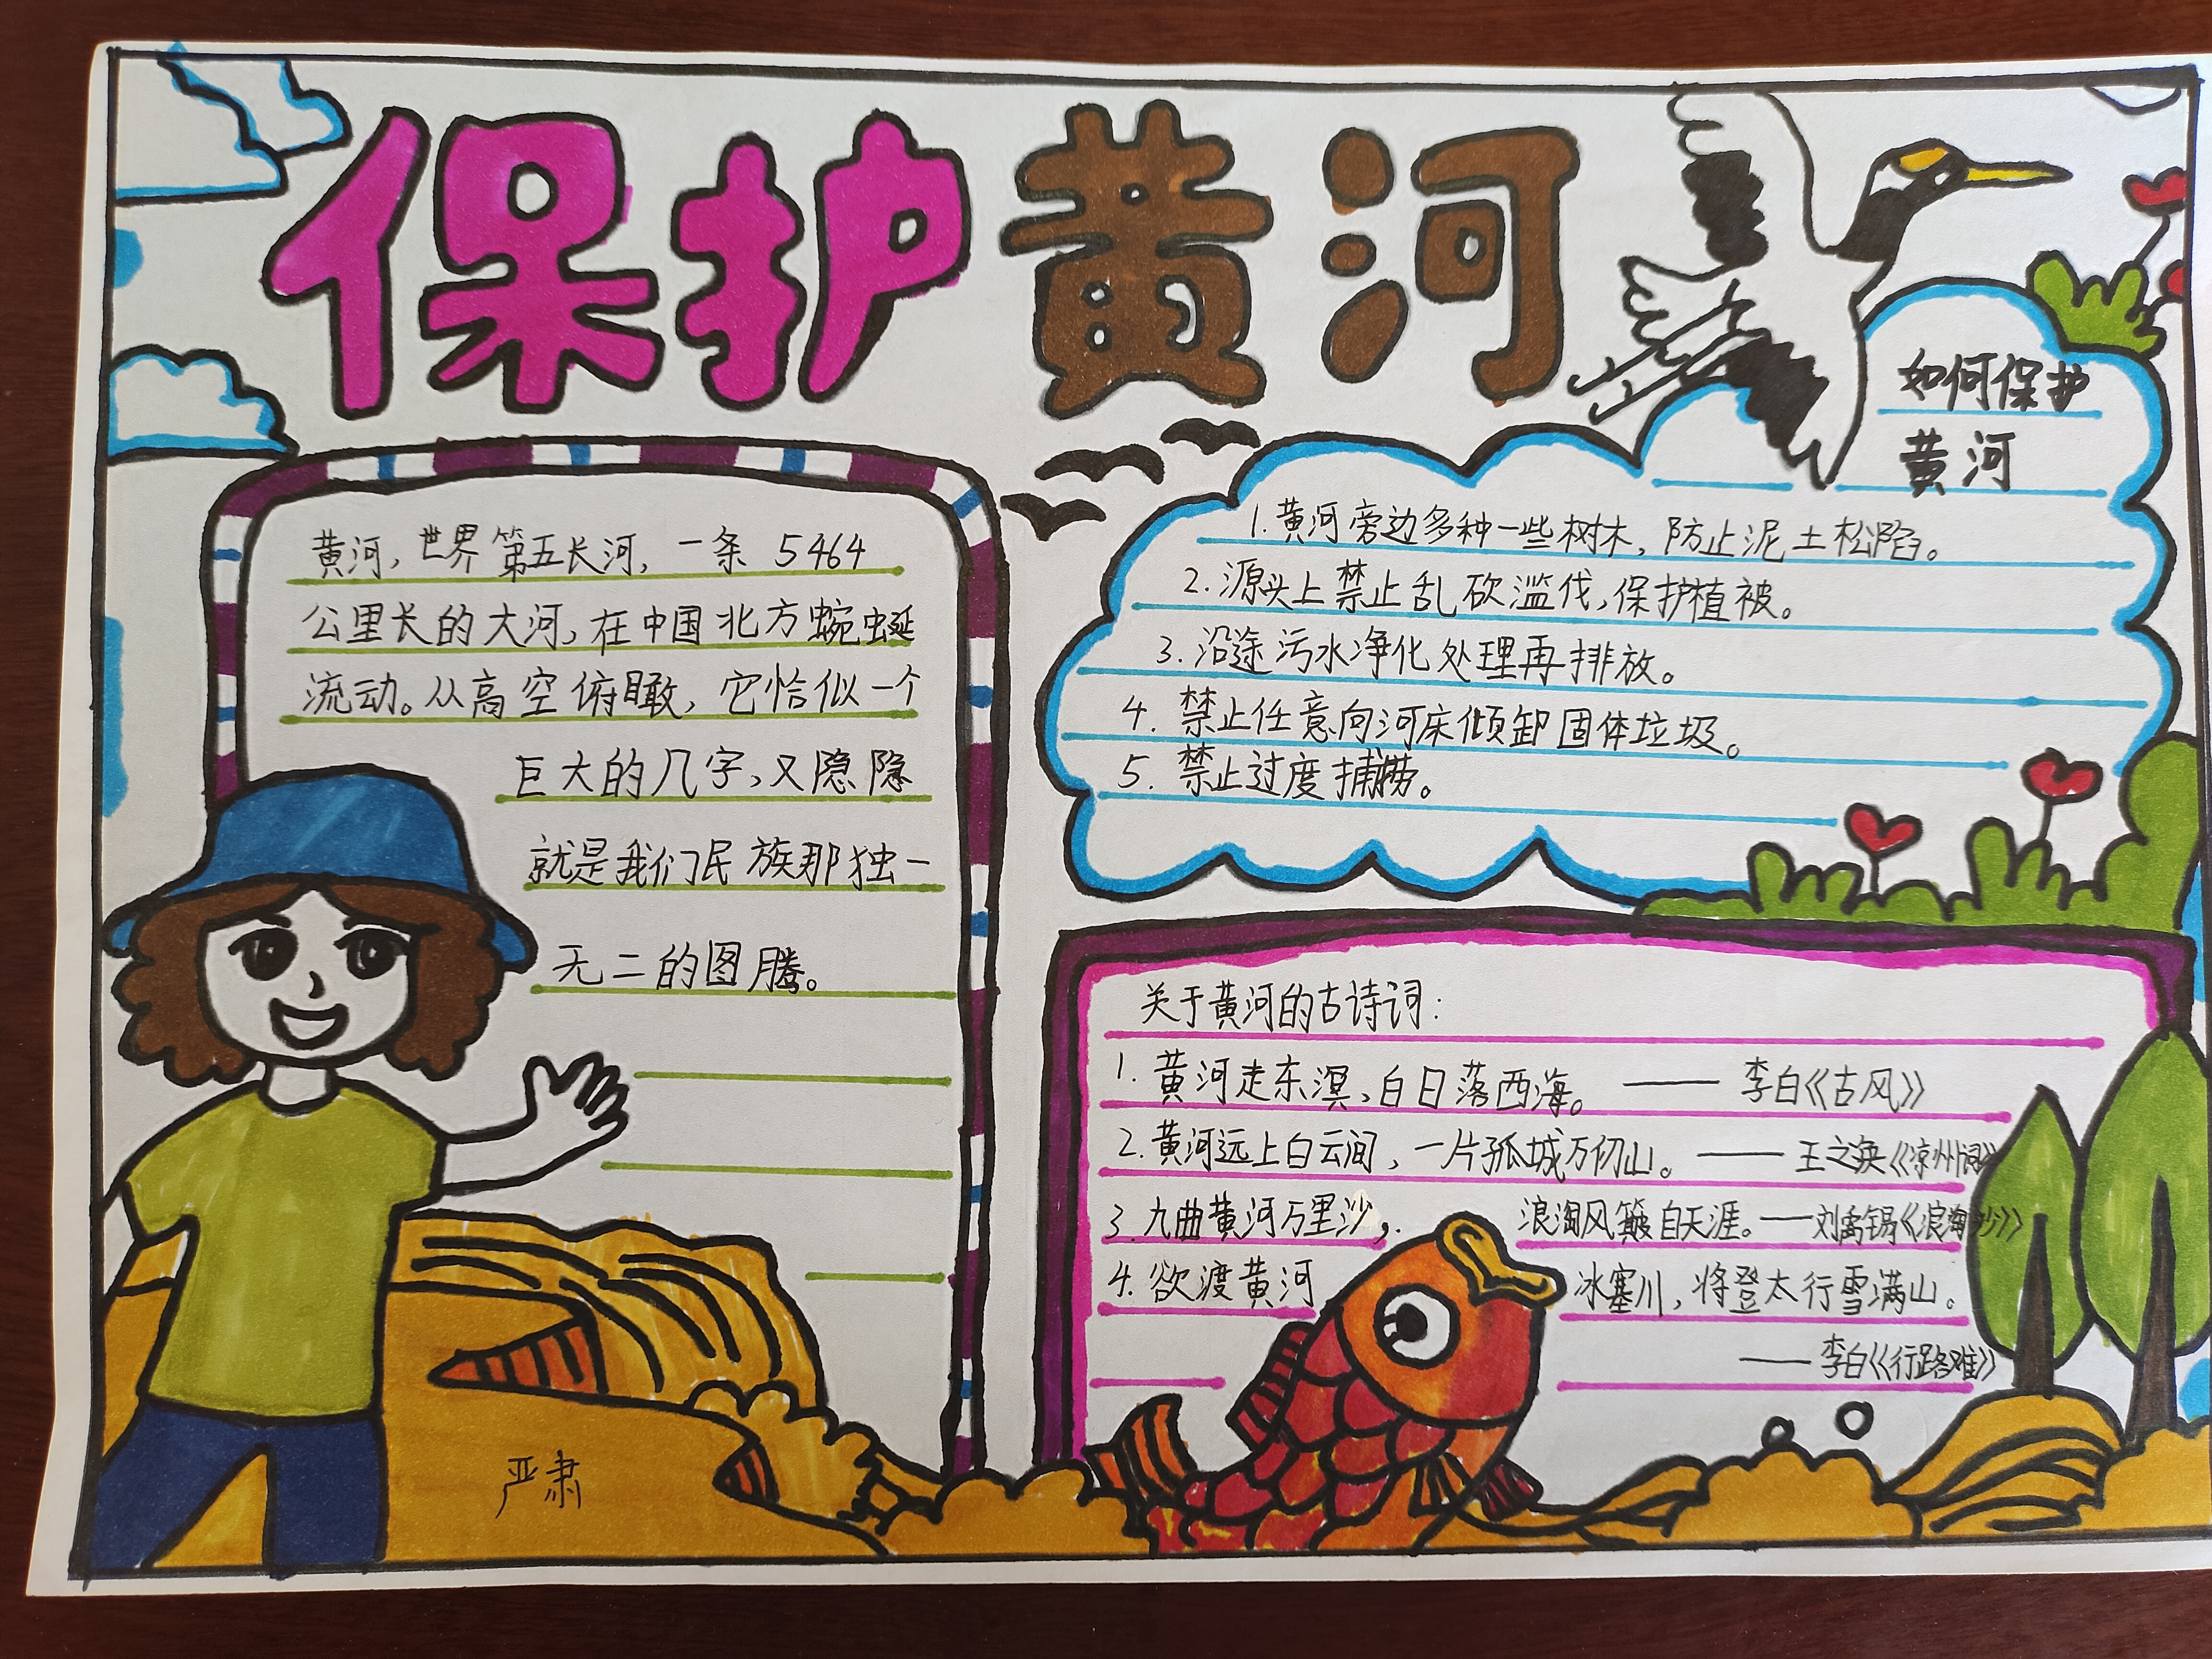 保护黄河
黄河，世界第五长河，一条 5464
公里长的大河，在中国北方蜿蜒
流动。从高空俯瞰，它恰似一个
巨大的几字，又隐隐
就是我们民族那独一
无二的图腾。
严肃
如何保护
黄河
1.黄河旁边多种一些树木，防止泥土松陷。
2.源头上禁止乱砍滥伐，保护植被。
3.沿途污水净化处理再排放。
4.禁止任意向河床倾卸固体垃圾。
5.禁止过度捕捞。
关于黄河的古诗词：
1.黄河走东溟，白日落西海。——李白《古风》
2.黄河远上白云间，一片孤城万仞山。——王之涣《凉州词》
3.九曲黄河万里沙，浪淘风簸自天涯。——刘禹锡《浪淘沙》
4.欲渡黄河冰塞川，将登太行雪满山。
——李白《行路难》